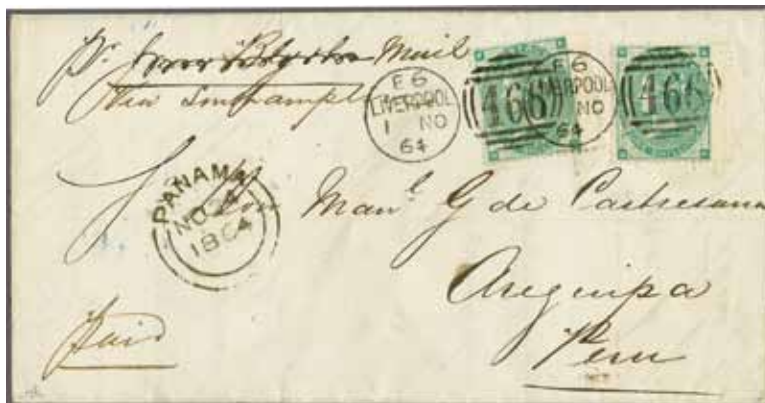 Pr. Mail
Via Southampton
E 6
LIVERPOOL
1 NO
64
466
E 6
LIVERPOOL
NO
64
466
PANAMA
NO 24
1864
Manl. G de Castresana
Arequipa
Peru
Paid